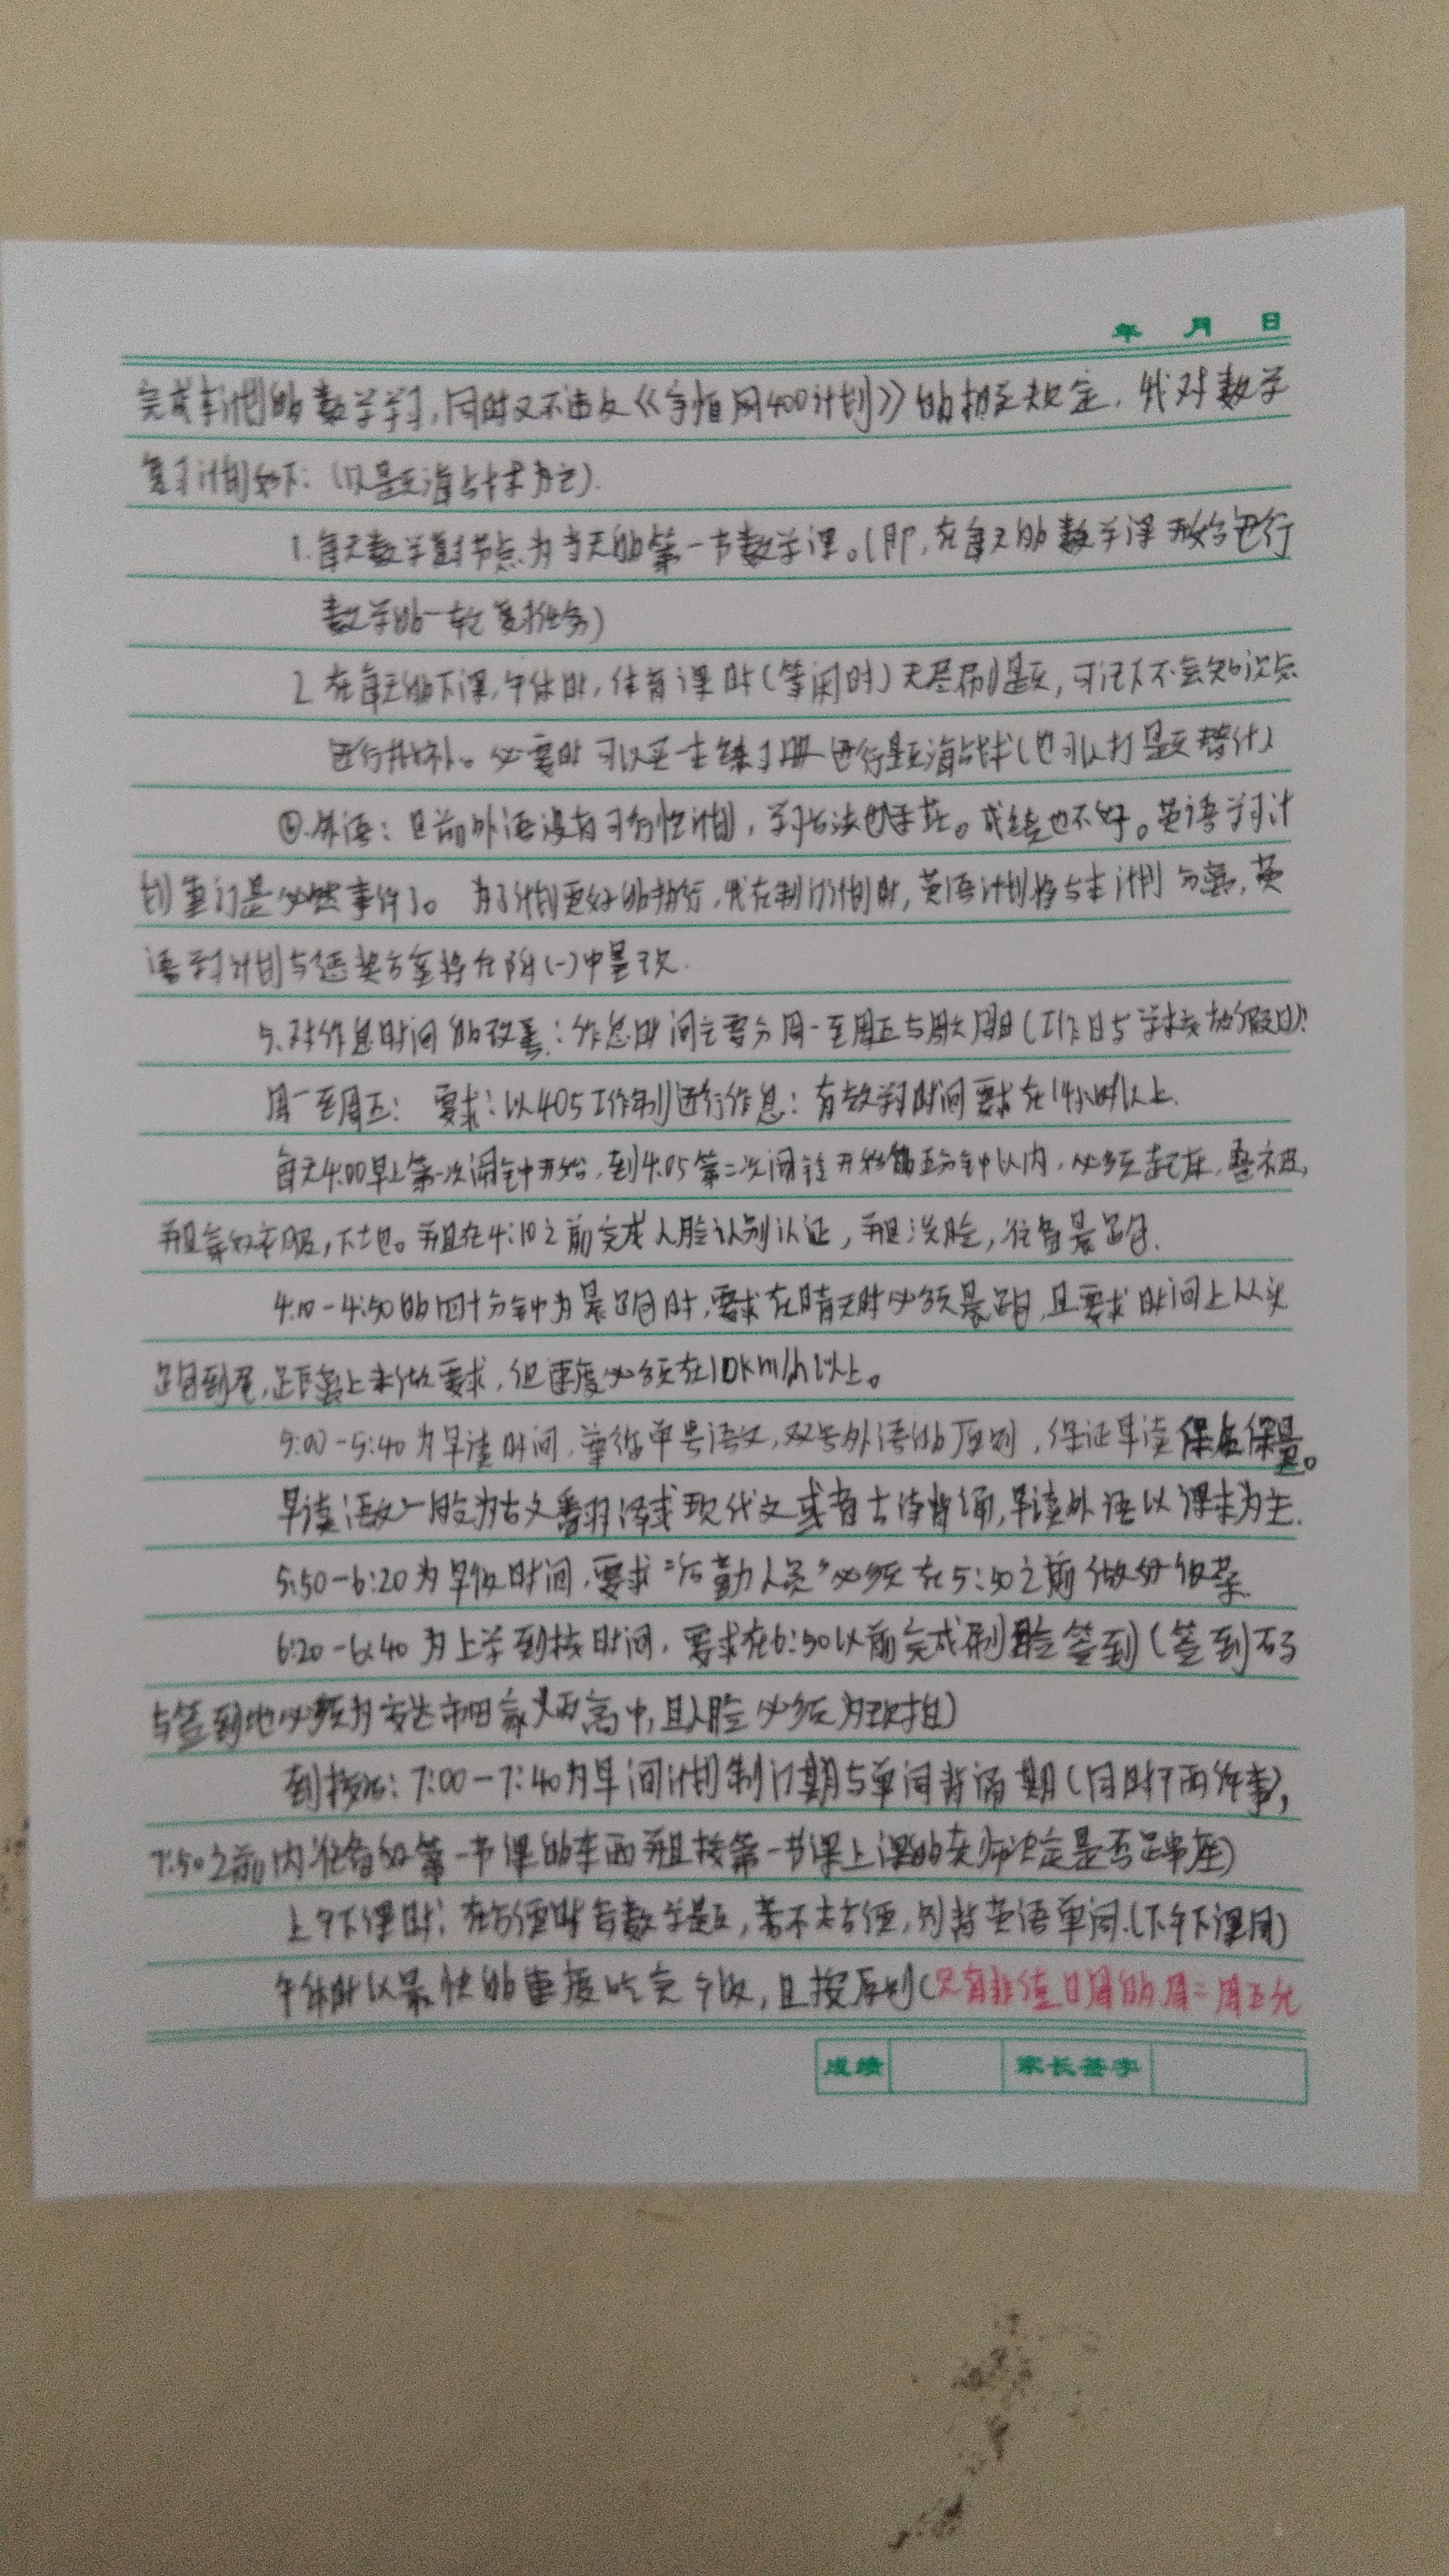 年 月 日
完成本计划的数学学习,同时又不违反《 网400计划》的相关规定,我对数学
复习计划如下:(以题海战术为主).
1.每天数学复习节点为当天的第一节数学课。(即,在每天的数学课开始进行
数学的一轮复习任务)
2.在每天的下课,午休时,体育课时(等闲时)无差别刷题,可记下不会知识点
进行找补。必要时可以买一本练习册进行题海战术(也可以打题替代)
④.外语:目前外语没有可行性计划,学习方法也 。成绩也不好。英语学习计
划重订是必然事件了。为了计划更好的执行,我在制订计划时,英语计划将与本计划分离,英
语学习计划与惩奖方案将在附(一)中呈现.
5.对作息时间的改善:作息时间主要分周一至周五与周六周日(工作日与学校放假日):
周一至周五: 要求:以405工作制进行作息:有效学习时间要求在14小时以上.
每天4:00早上第一次闹钟开始,到4:05第二次闹钟开始的五分钟以内,必须起床,叠被,
并且穿好衣服,下地。并且在4:10之前完成人脸识别认证,并且洗脸,准备晨跑.
4:10-4:50的四十分钟为晨跑时,要求在晴天时必须晨跑,且要求时间上从头
跑到尾,距离上未做要求,但速度必须在10km/h以上。
5:00-5:40为早读时间,遵循单号语文,双号外语的原则,保证早读保质保量。
早读语文一般为古文翻译或现代文或者古诗背诵,早读外语以课本为主.
5:50-6:20为早饭时间,要求“后勤人员”必须在5:50之前做好饭菜
6:20-6:40为上学到校时间,要求在6:50以前完成刷脸签到(签到码
与签到地必须为 高中,且人脸必须为现拍)
到校后:7:00-7:40为早间计划制订期与单词背诵期(同时干两件事),
7:50之前内准备好第一节课的东西并且按第一节课上课的老师决定是否 座)
上午下课时:在方便时写数学题,若不太方便,则背英语单词.(下午下课同)
午休时以最快的速度吃完午饭,且按原则(只有非值日周的周二周五允
成绩 家长签字